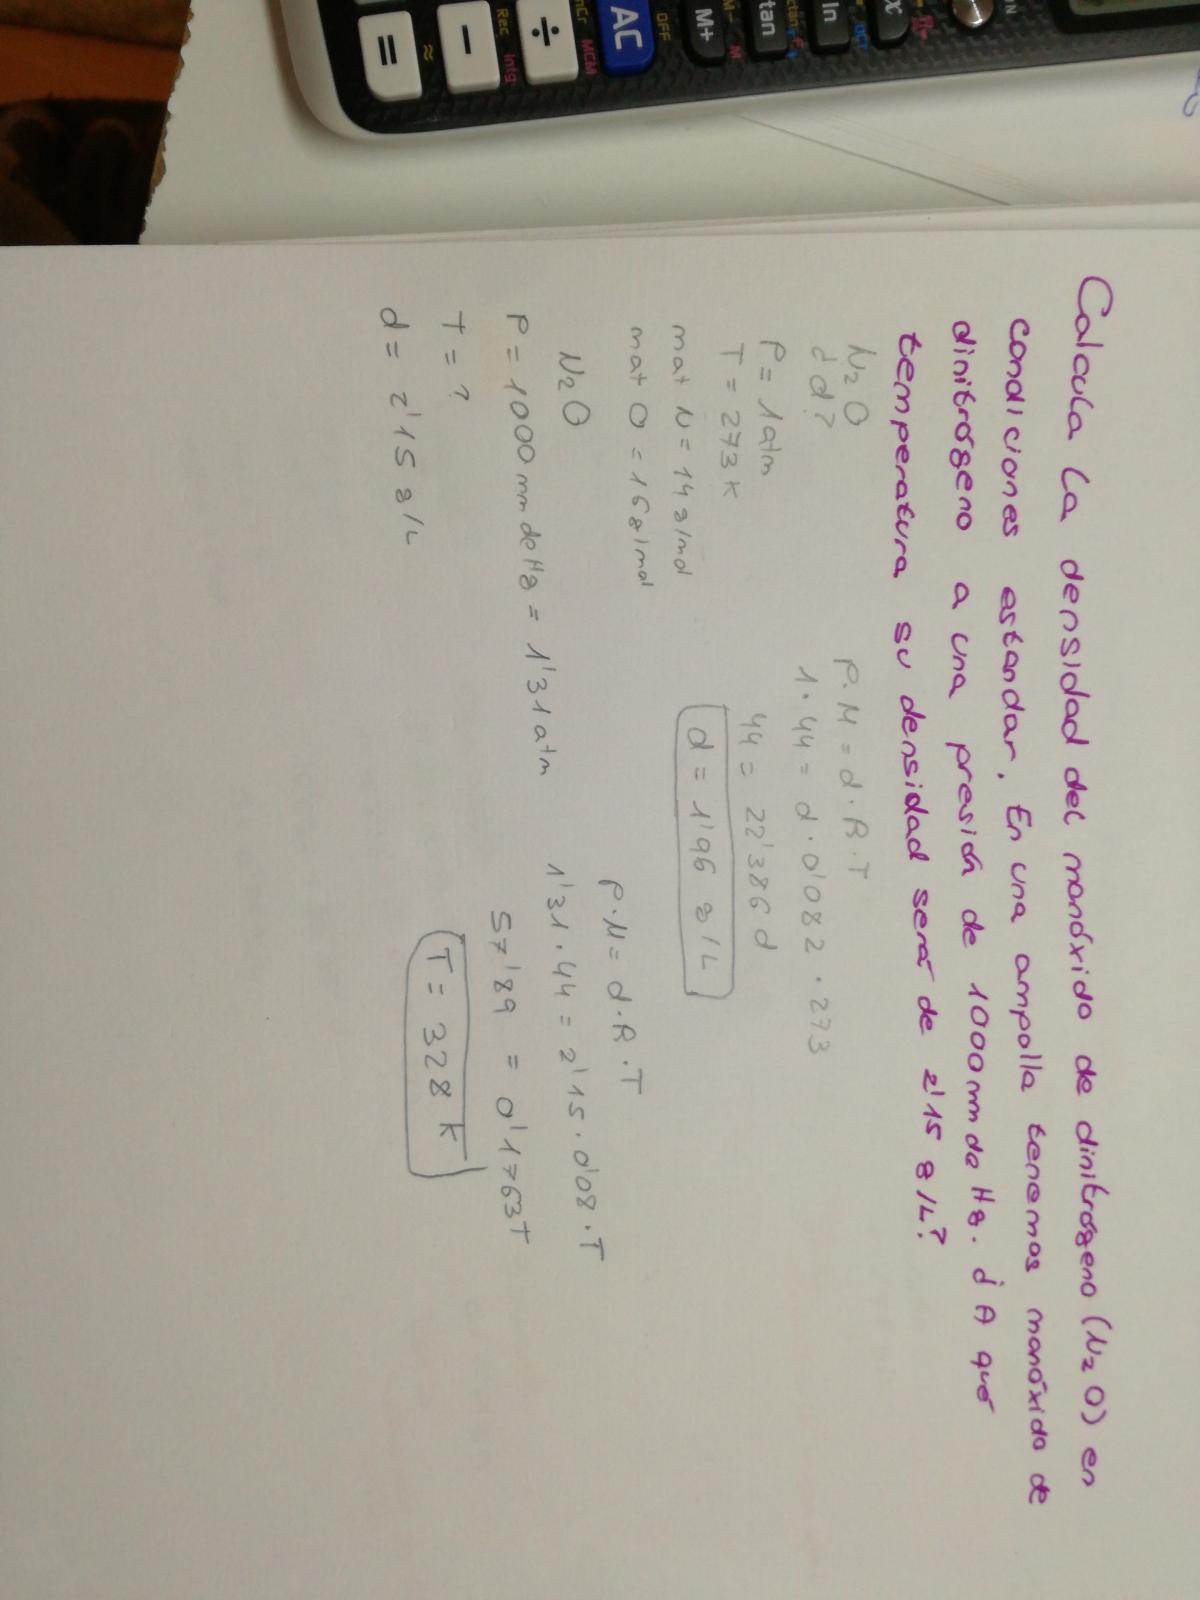 Calcula la densidad del monóxido de dinitrógeno (N₂O) en
condiciones estandar. En una ampolla tenemos monóxido de
dinitrógeno a una presión de 1000 mm de Hg. ¿A qué
temperatura su densidad será de 2'15 g/L?
N₂O
¿d?
P = 1 atm
T = 273 K
mat N = 14 g/mol
mat O = 16 g/mol
P·M = d·R·T
1·44 = d·0'082·273
44 = 22'386 d
d = 1'96 g/L
N₂O
P = 1000 mm de Hg = 1'31 atm
T = ?
d = 2'15 g/L
P·M = d·R·T
1'31·44 = 2'15·0'08·T
57'89 = 0'1763T
T = 328 K
IN
ln
tan
M+
M−
M
OFF
AC
÷
MCM
−
Rec
Intg
≈
=